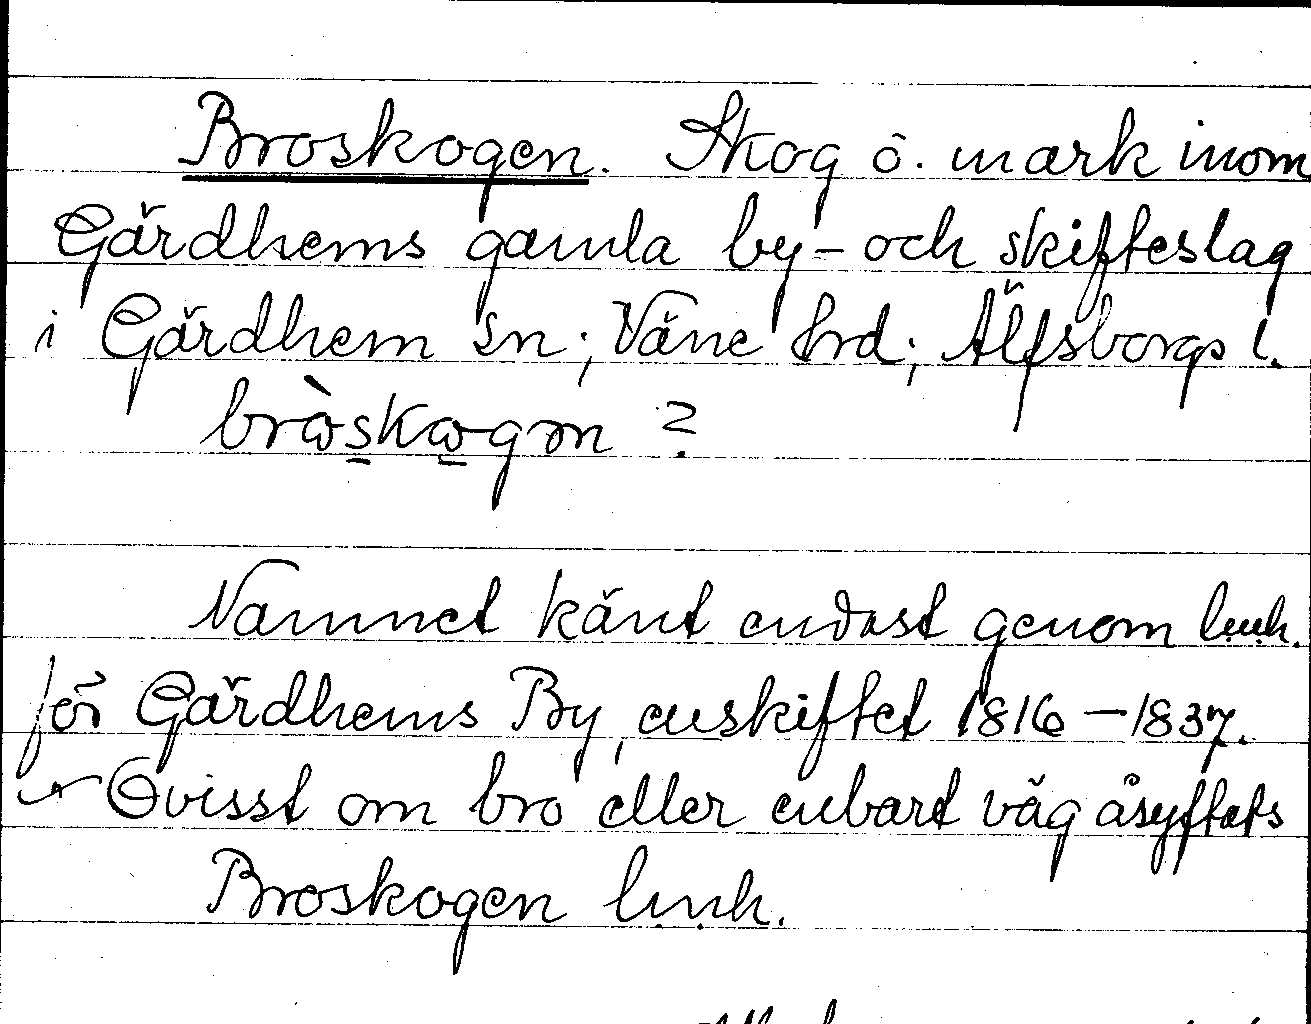 Broskogen. Skog o. mark inom
Gärdhems gamla by- och skifteslag
i Gärdhem sn; Väne hrd; Älfsborgs l.
brὼskωgɷn ?
Namnet känt endast genom l.m.h.
för Gärdhems By, enskiftet 1816-1837.
Ovisst om bro eller enbart väg åsyftats
Broskogen l.m.h.